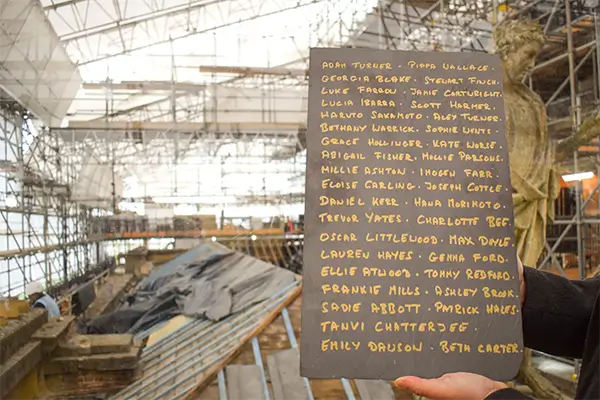 ADAM TURNER · PIPPA WALLACE ·
GEORGIA BLAKE · STEUART FINCH ·
LUKE FARROW · JAMIE CORTWRIGHT ·
LUCIA IBARRA · SCOTT HARMER ·
HARUTO SAKAMOTO · ALEX TURNER ·
BETHANY WARRICK · SOPHIE WENTS ·
GRACE HOLLINGER · KATE WORSE ·
ABIGAIL FISHER · MILLIE PARSONS ·
MILLIE ASHTON · IMOGEN FARR ·
ELOISE CARLING · JOSEPH COTTLE ·
DANIEL KERR · HANA MORIMOTO ·
TREVOR YATES · CHARLOTTE BEE ·
OSCAR LITTLEWOOD · MAX DOYLE ·
LAUREN HAYES · GEMMA FORD ·
ELLIE ATWOOD · TOMMY REDFORD ·
FRANKIE MILLS · ASHLEY BROOK ·
SADIE ABBOTT · PATRICK HALES ·
TANVI CHATTERJEE ·
EMILY DAWSON · BETH CARTER ·